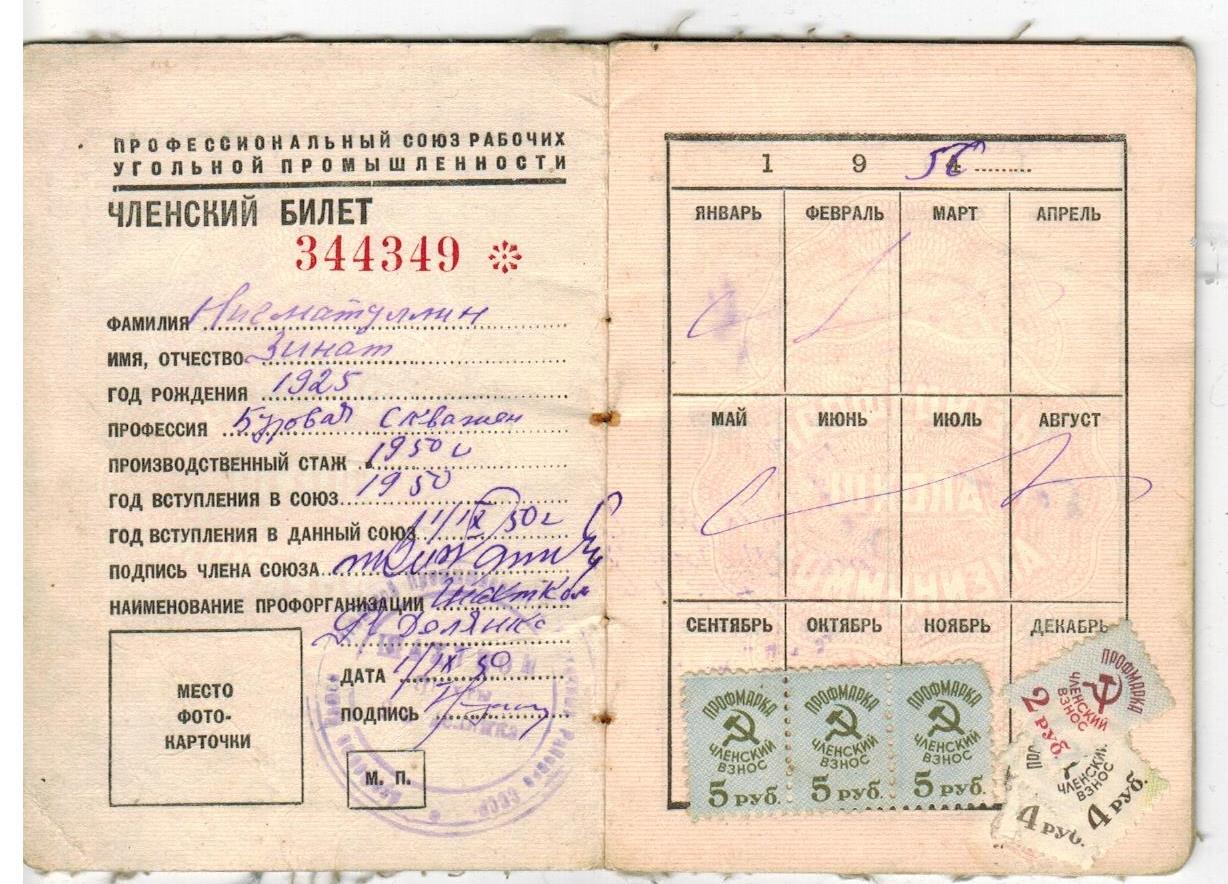 ПРОФЕССИОНАЛЬНЫЙ СОЮЗ РАБОЧИХ
УГОЛЬНОЙ ПРОМЫШЛЕННОСТИ
ЧЛЕНСКИЙ БИЛЕТ
344349
ФАМИЛИЯ Нигматуллин
ИМЯ, ОТЧЕСТВО Зинат
ГОД РОЖДЕНИЯ 1925
ПРОФЕССИЯ Буровая скважен
ПРОИЗВОДСТВЕННЫЙ СТАЖ 1950 г
ГОД ВСТУПЛЕНИЯ В СОЮЗ 1950
ГОД ВСТУПЛЕНИЯ В ДАННЫЙ СОЮЗ 1/IX 50 г
ПОДПИСЬ ЧЛЕНА СОЮЗА
НАИМЕНОВАНИЕ ПРОФОРГАНИЗАЦИИ Шахтком
Долянка
ДАТА 1/IX 50
ПОДПИСЬ
МЕСТО
ФОТО-
КАРТОЧКИ
М. П.
1 9 5
ЯНВАРЬ ФЕВРАЛЬ МАРТ АПРЕЛЬ
МАЙ ИЮНЬ ИЮЛЬ АВГУСТ
СЕНТЯБРЬ ОКТЯБРЬ НОЯБРЬ ДЕКАБРЬ
ПРОФМАРКА
ЧЛЕНСКИЙ
ВЗНОС
5 РУБ.
ПРОФМАРКА
ЧЛЕНСКИЙ
ВЗНОС
5 РУБ.
ПРОФМАРКА
ЧЛЕНСКИЙ
ВЗНОС
5 РУБ.
ПРОФМАРКА
ЧЛЕНСКИЙ
ВЗНОС
2 РУБ.
ЧЛЕНСКИЙ
ВЗНОС
4 РУБ.
4 РУБ.